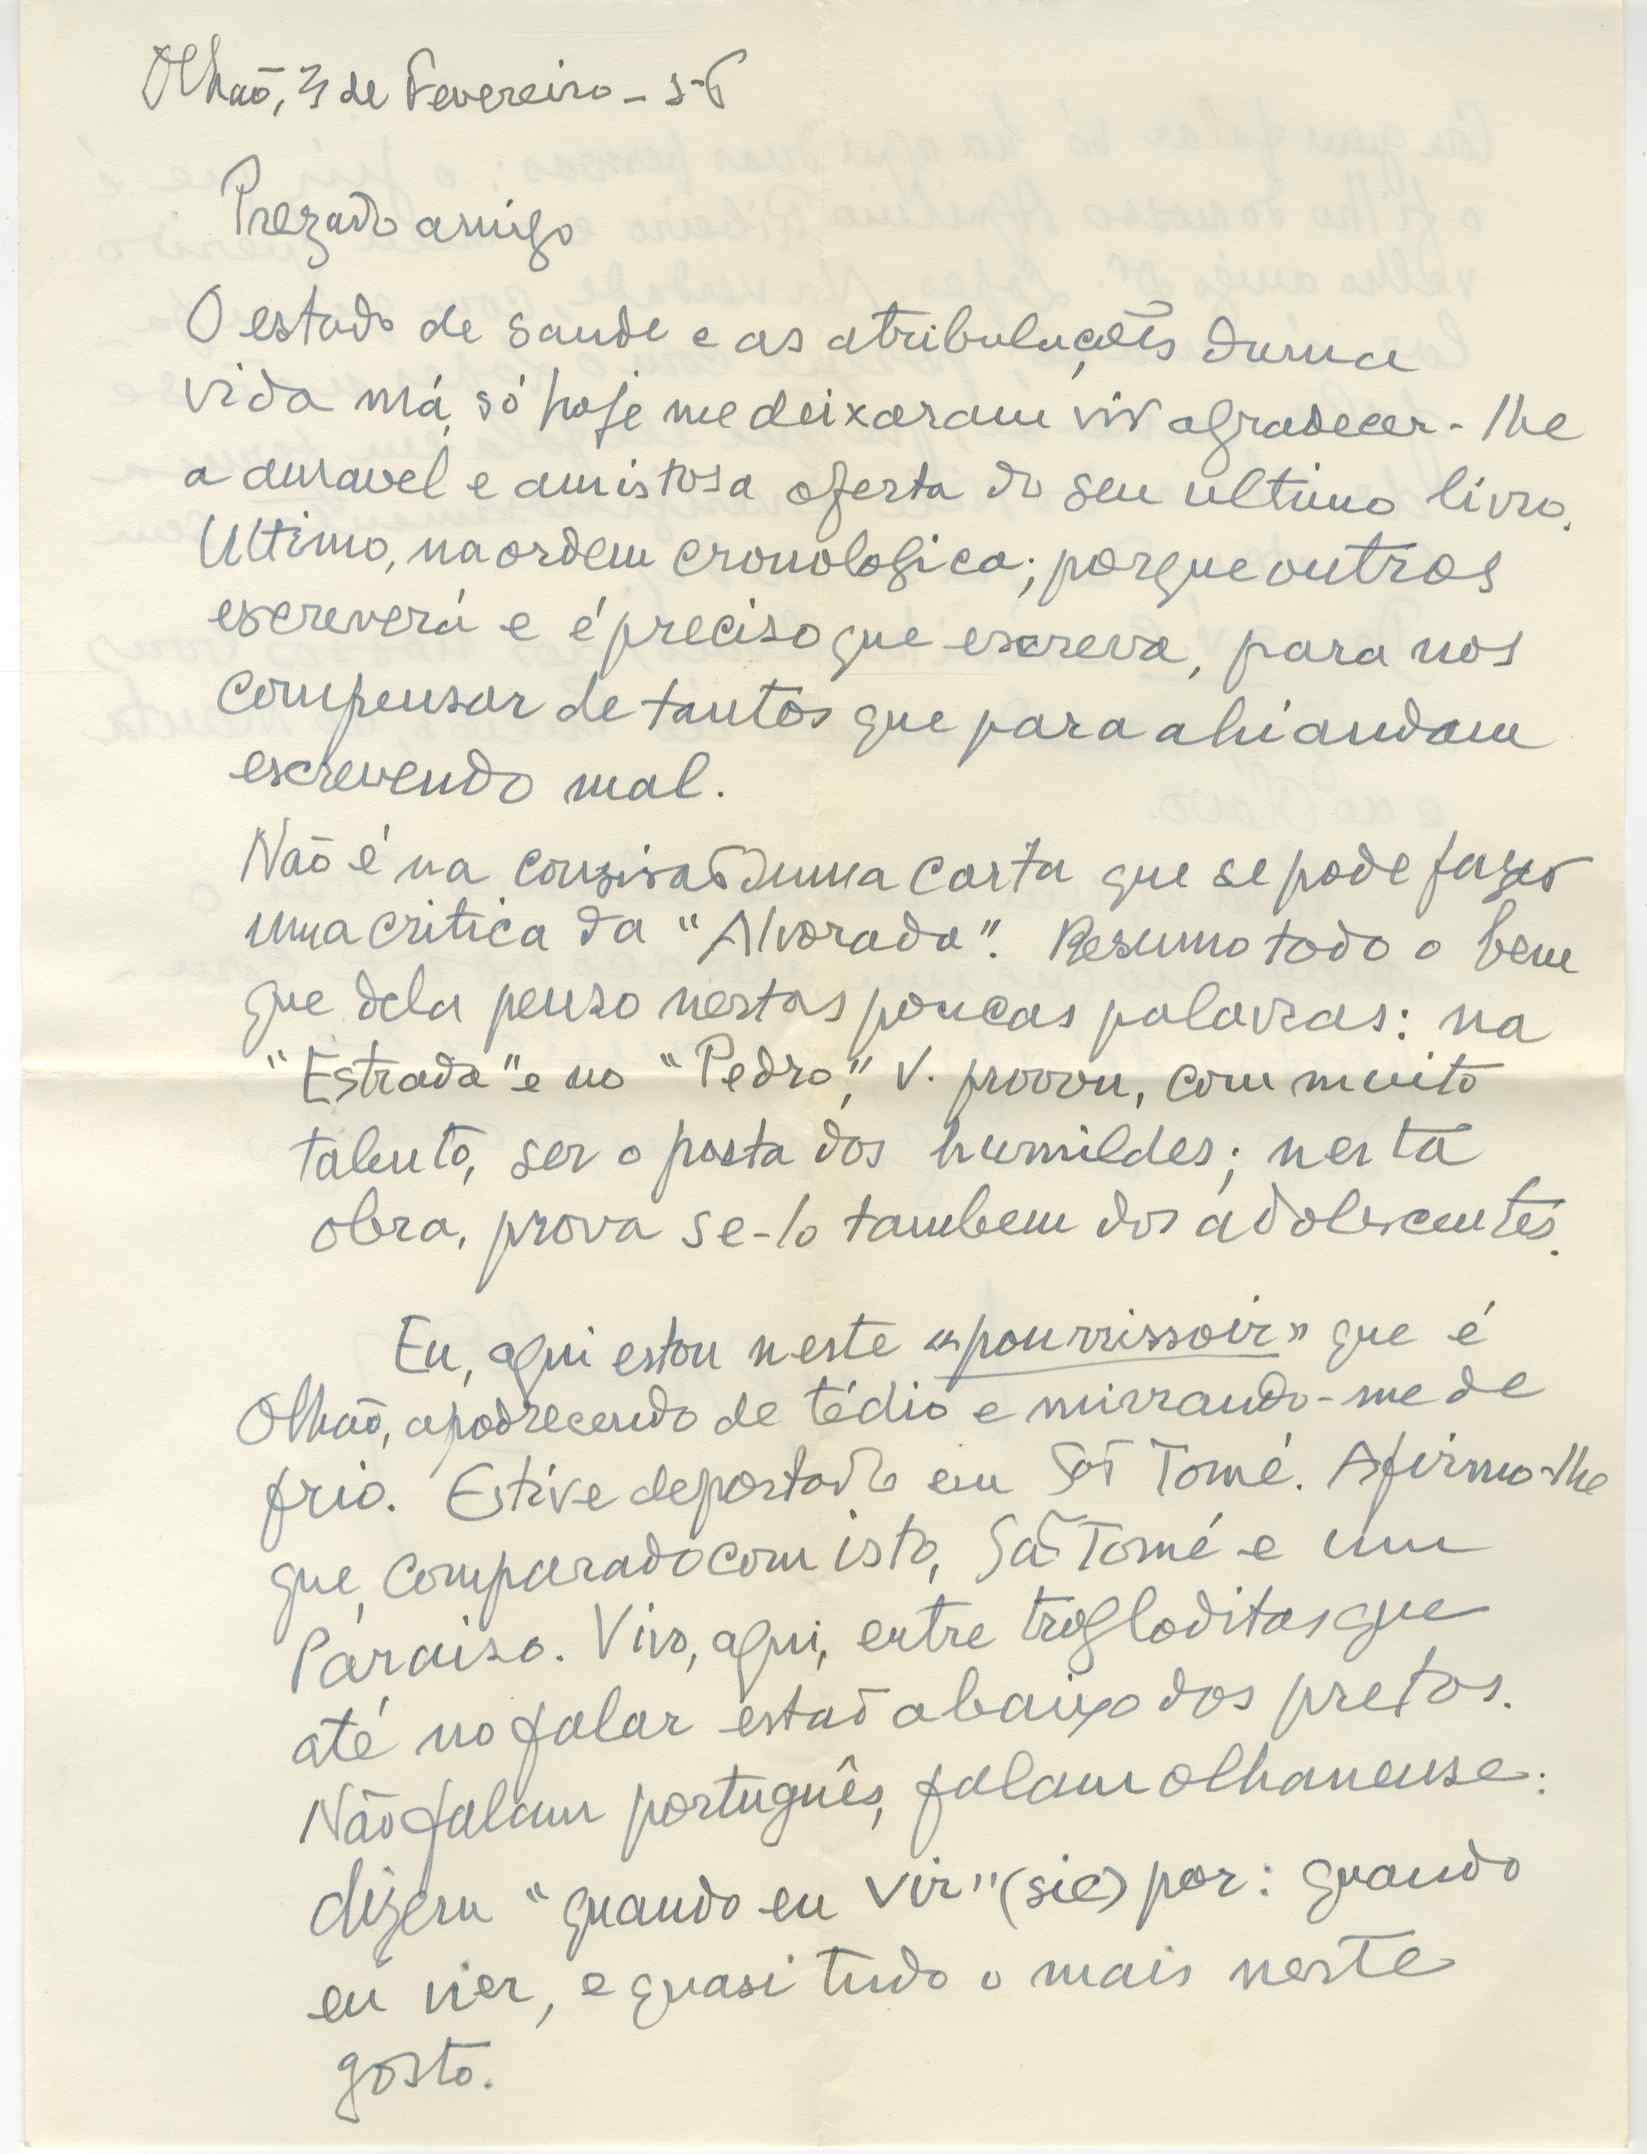 Olhão, 3 de Fevereiro - 56
Prezado amigo
O estado de saude e as atribulações duma
vida má, só hoje me deixaram vir agradecer-lhe
a amavel e amistosa oferta do seu ultimo livro.
Ultimo, na ordem cronologica; porque outros
escreverá e é preciso que escreva, para nos
compensar de tantos que para ahi andam
escrevendo mal.
Não é na consisão duma carta que se pode fazer
uma critica da "Alvorada". Resumo todo o bem
que dela penso nestas poucas palavras: na
"Estrada" e no "Pedro," V. provou, com muito
talento, ser o poeta dos humildes; nesta
obra, prova se-lo tambem dos adolescentes.
Eu, aqui estou neste «pourrissoir» que é
Olhão, apodrecendo de tédio e mirrando-me de
frio. Estive deportado em São Tomé. Afirmo-lhe
que, comparado com isto, São Tomé e um
Paraiso. Vivo, aqui, entre trogloditas que
até no falar estão abaixo dos pretos.
Não falam português, falam olhanense:
dizem "quando eu vir" (sic) por: quando
eu vier, e quasi tudo o mais neste
gosto.